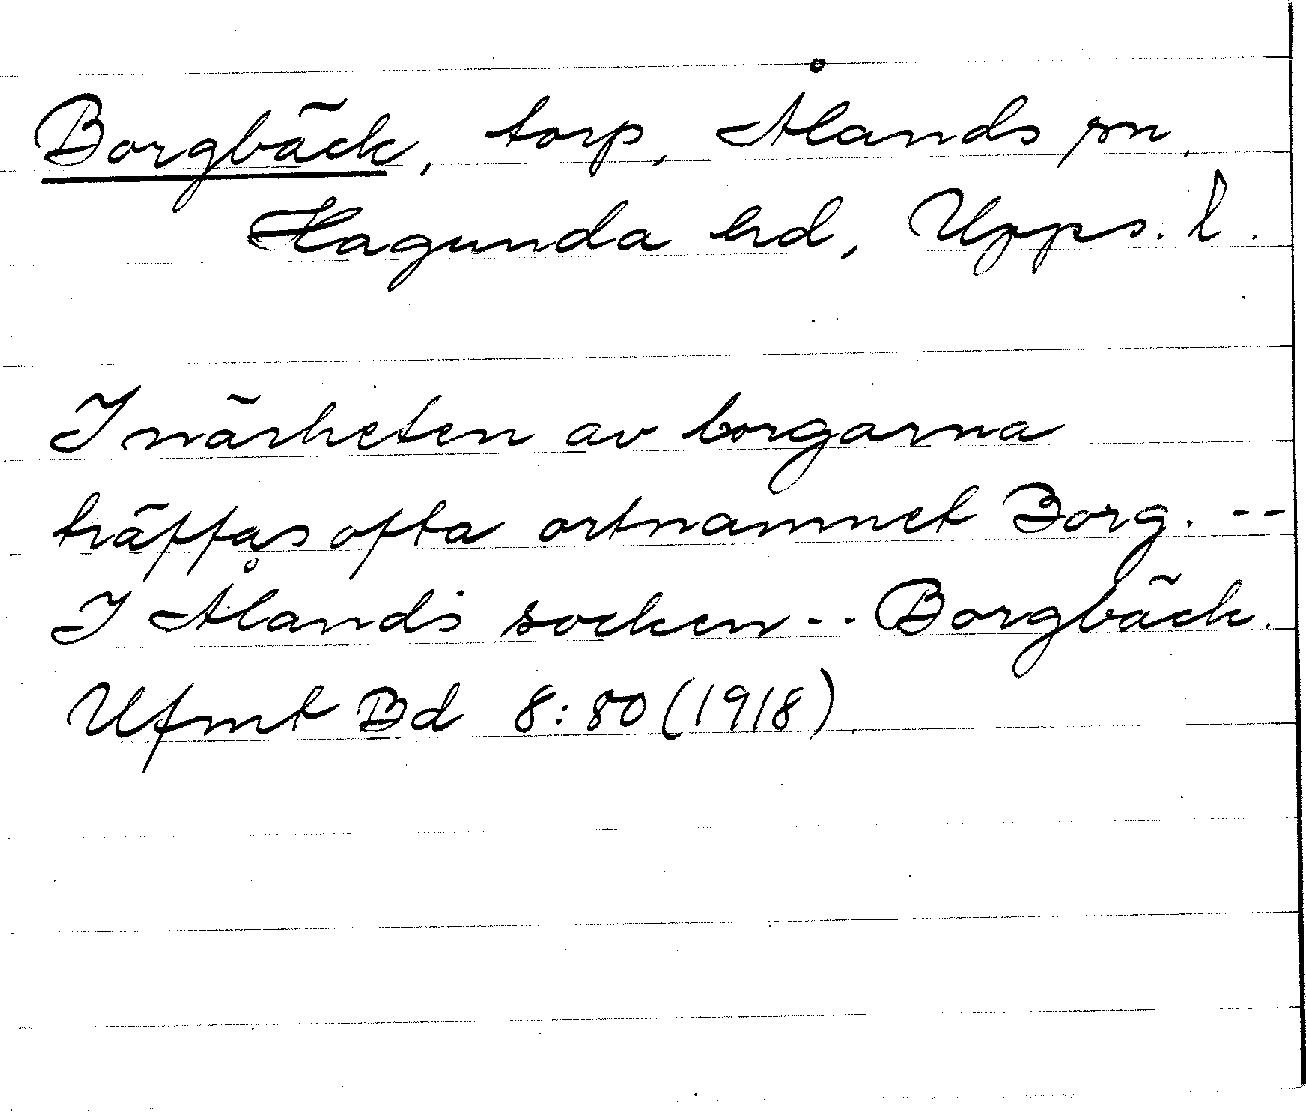 Borgbäck, torp, Ålands sn,
Hagunda hd, Upps. l.
I närheten av borgarna
träffas ofta ortnamnet Borg. --
I Ålands socken -- Borgbäck.
Ufmt Bd 8:80 (1918)